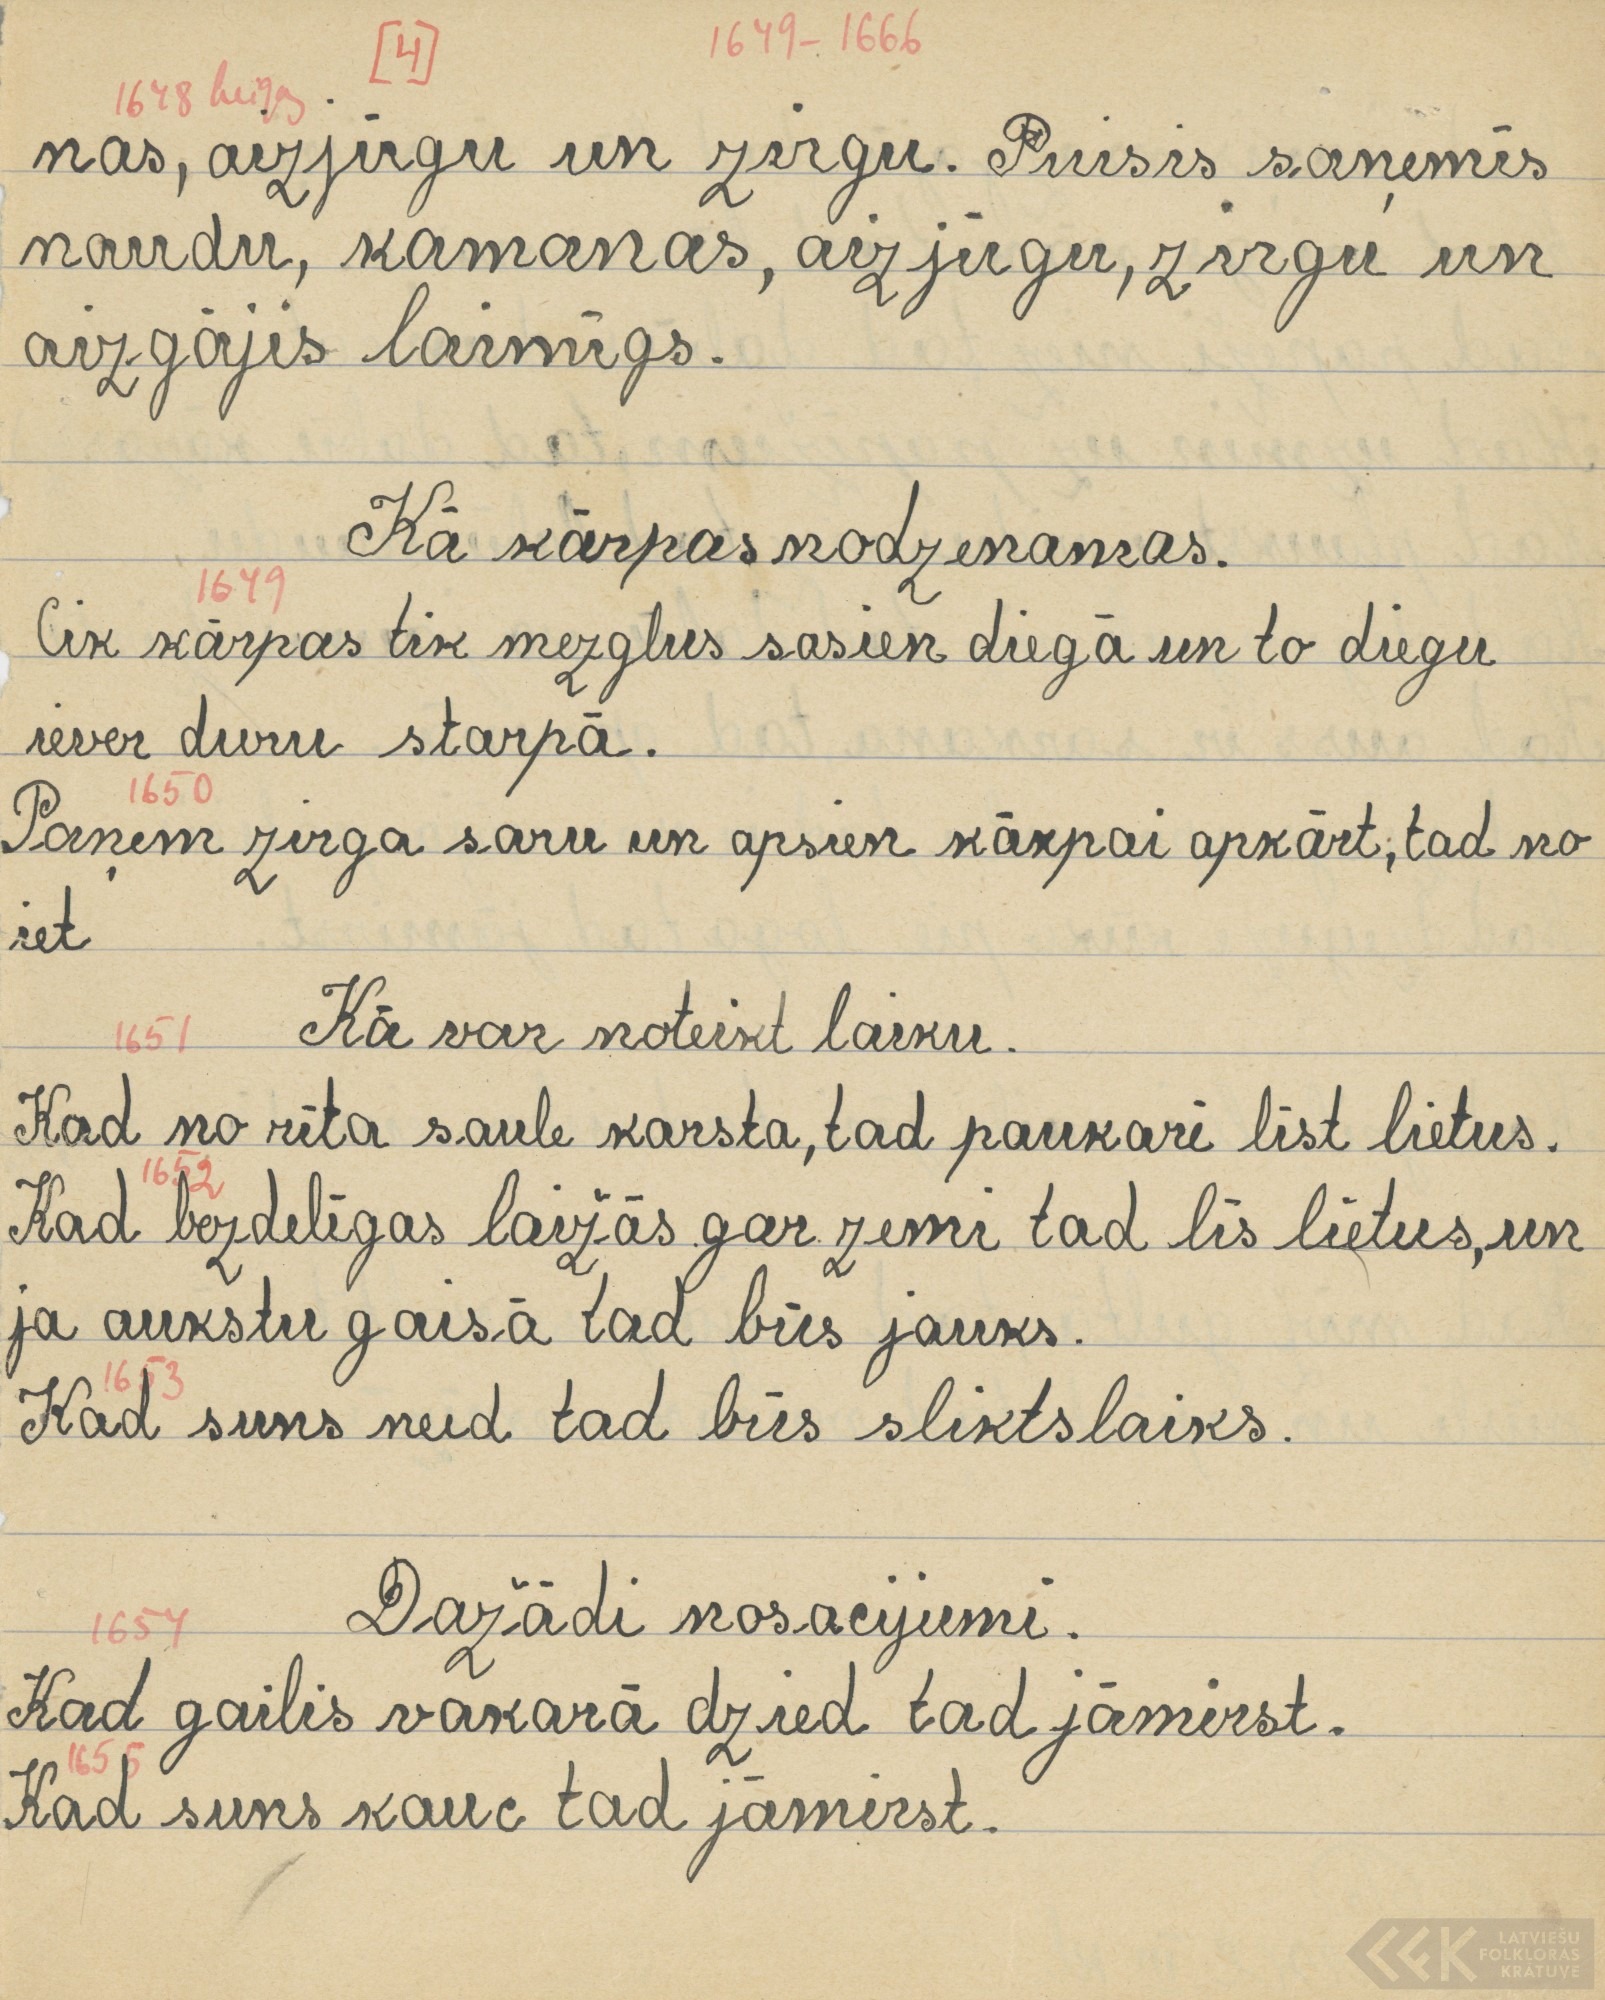 [4] 1649-1666
1648 beigas
nas, aizjūgu un zirgu. Puisis saņēmis
naudu, kamanas, aizjūgu, zirgu un
aizgājis laimīgs.
Kā kārpas nodzenamas.
1649
Cik kārpas tik mezglus sasien diegā un to diegu
iever duru starpā.
1650
Paņem zirga saru un apsien kārpai apkārt, tad no
iet
1651 Kā var noteikt laiku.
Kad no rīta saule karsta, tad paukari līst lietus.
1652
Kad bezdelīgas laižās gar zemi tad līs lietus, un
ja aukstu gaisā tad būs jauks.
1653
Kad suns reid tad būs sliktslaiks.
Dažādi nosacijumi.
1654
Kad gailis vakarā dzied tad jāmirst.
1655
Kad suns kauc tad jāmirst.
LATVIEŠU
FOLKLORAS
KRĀTUVE